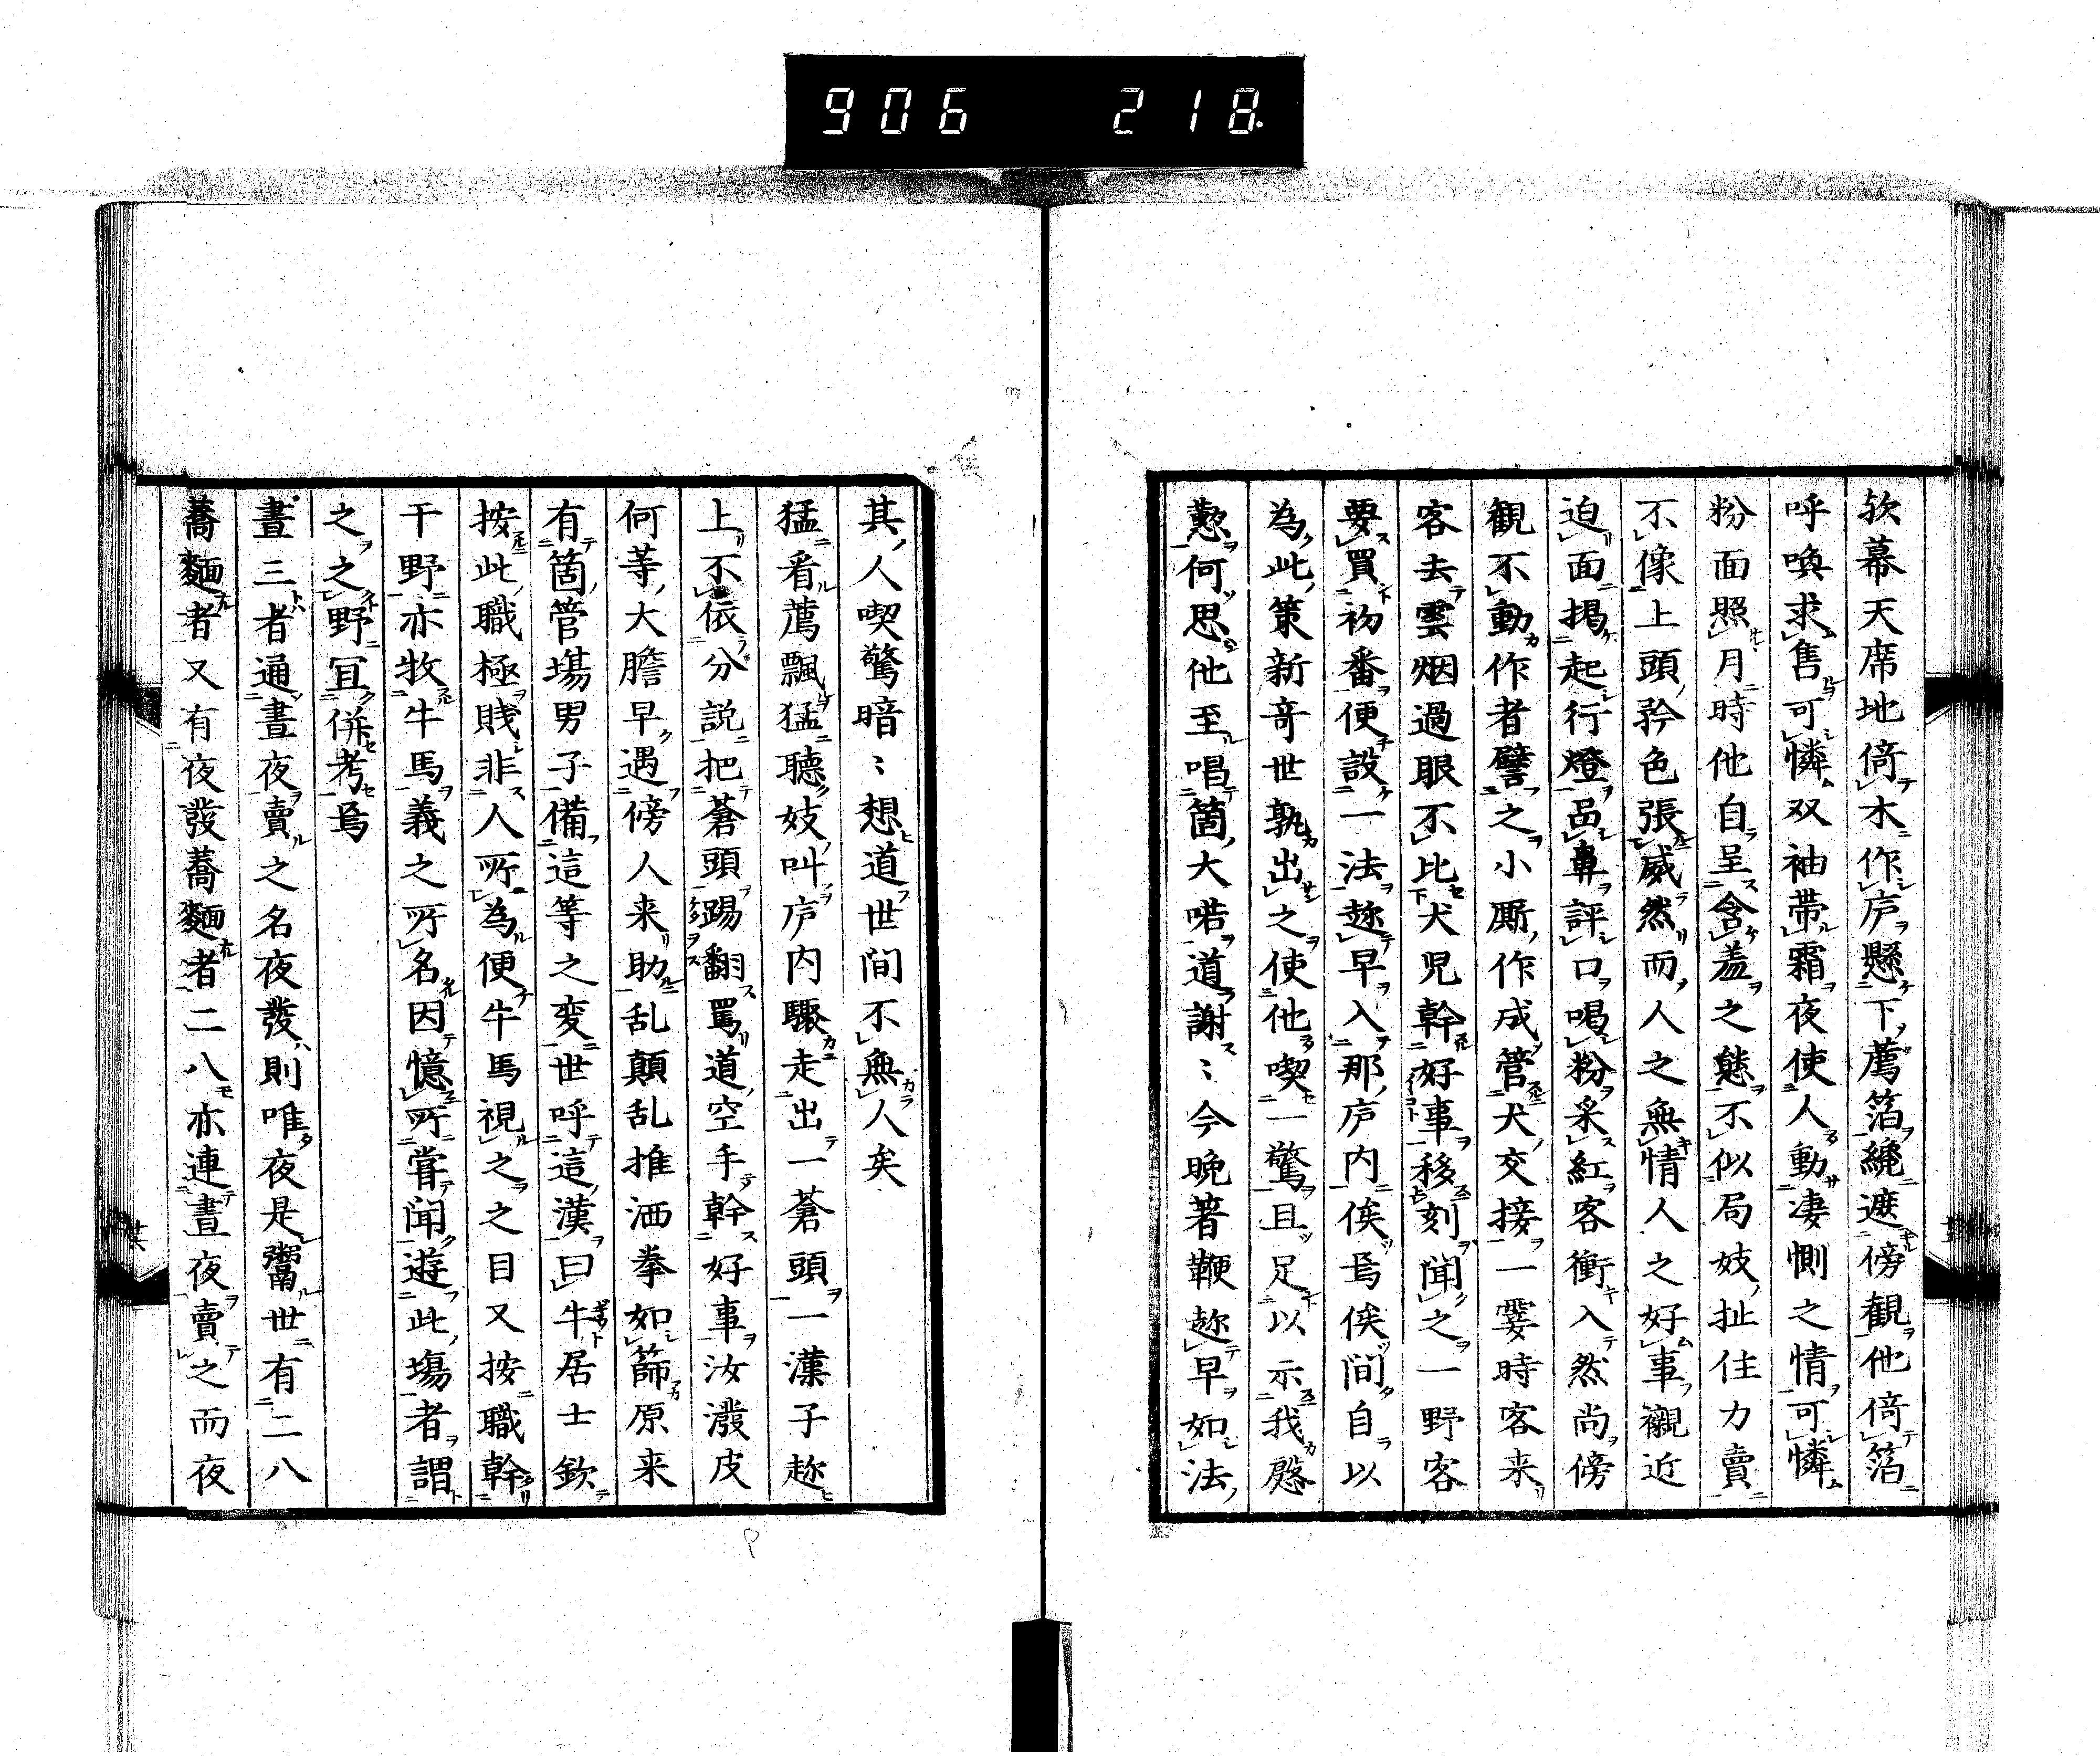 906 218.
欤幕天席地倚木作庐懸下薦箔繞遮傍観他倚箔
呼喚求售可憐双袖帯霜夜使人動凄惻之情可憐
粉面照月時他自呈含羞之態不似局妓扯住力賣
不像上頭矜色張威然而人之無情人之好事襯近
迫面掲起行燈品鼻評口喝粉采紅客衝入然尚傍
観不動作者譬之小厮作成管犬交接一霎時客来
客去雲烟過眼不比犬児幹好事移刻聞之一野客
要買初番便設一法趂早入那庐内俟焉俟間自以
為此策新奇世孰出之使他喫一驚且足以示我慇
懃何思他至唱箇大喏道謝〻今晩著鞭趂早如法
其人喫驚暗〻想道世間不無人矣
猛看薦飄猛聴妓叫庐内驟走出一蒼頭一漢子趂
上不依分説把蒼頭踢翻罵道空手幹好事汝潑皮
何等大膽早遇傍人来助乱顛乱推洒拳如篩原来
有箇管場男子備這等之変世呼這漢曰牛居士欽
按此職極賤非人所為便牛馬視之之目又按職幹
干野亦牧牛馬義之所名因憶所嘗聞遊此場者謂
之之野冝併考焉
晝三者通晝夜賣之名夜發則唯夜是鬻世有二八
蕎麺者又有夜發蕎麺者二八亦連晝夜賣之而夜